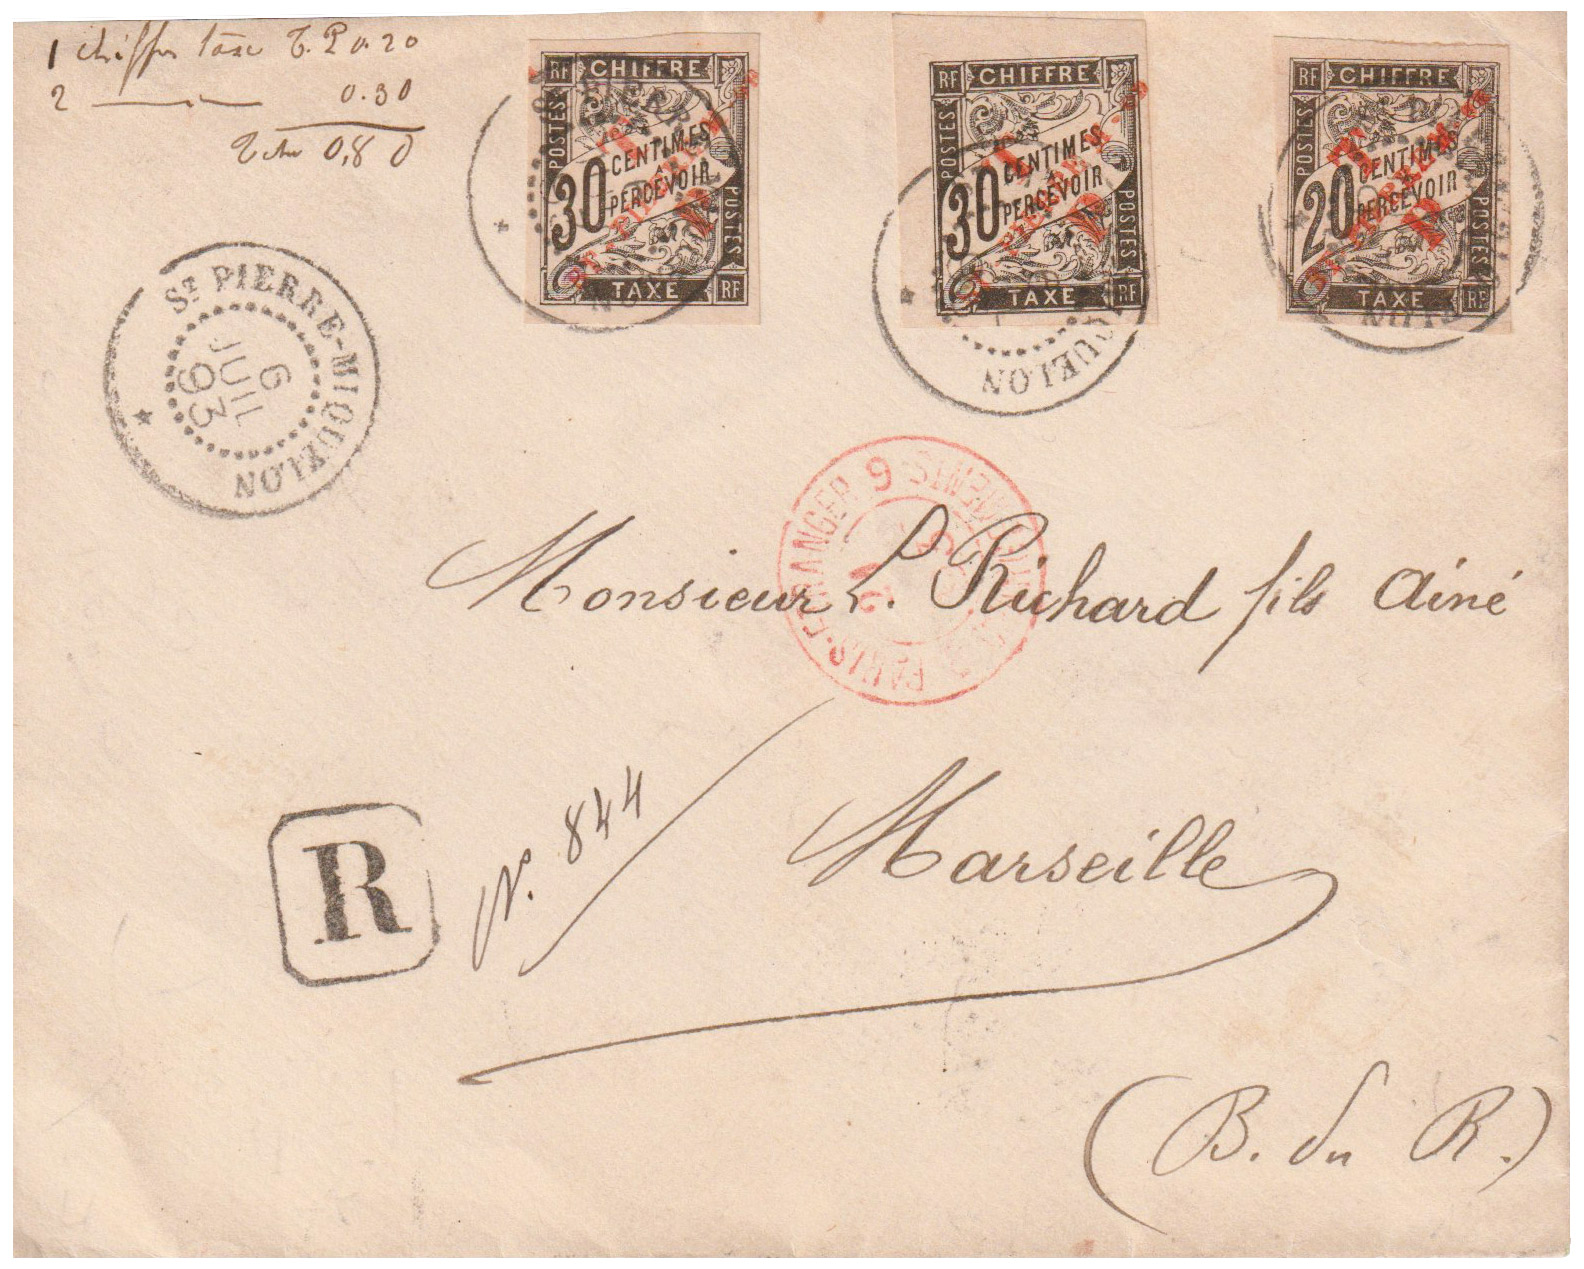 1 chiffre taxe T. P 0.20
2 — 0.30
0,80
RF CHIFFRE
POSTES
30 CENTIMES
À
PERCEVOIR
POSTES
TAXE RF
T
ST-PIERRE M-on
P
RF CHIFFRE
POSTES
30 CENTIMES
À
PERCEVOIR
POSTES
TAXE RF
T
ST-PIERRE M-on
P
QUELON
RF CHIFFRE
POSTES
20 CENTIMES
À
PERCEVOIR
POSTES
TAXE RF
T
ST-PIERRE M-on
P
ST PIERRE-MIQUELON
6
JUIL
93
PARIS-ETRANGER 6
Monsieur L. Richard fils Ainé
N°. 844
R
Marseille
(B. du R.)